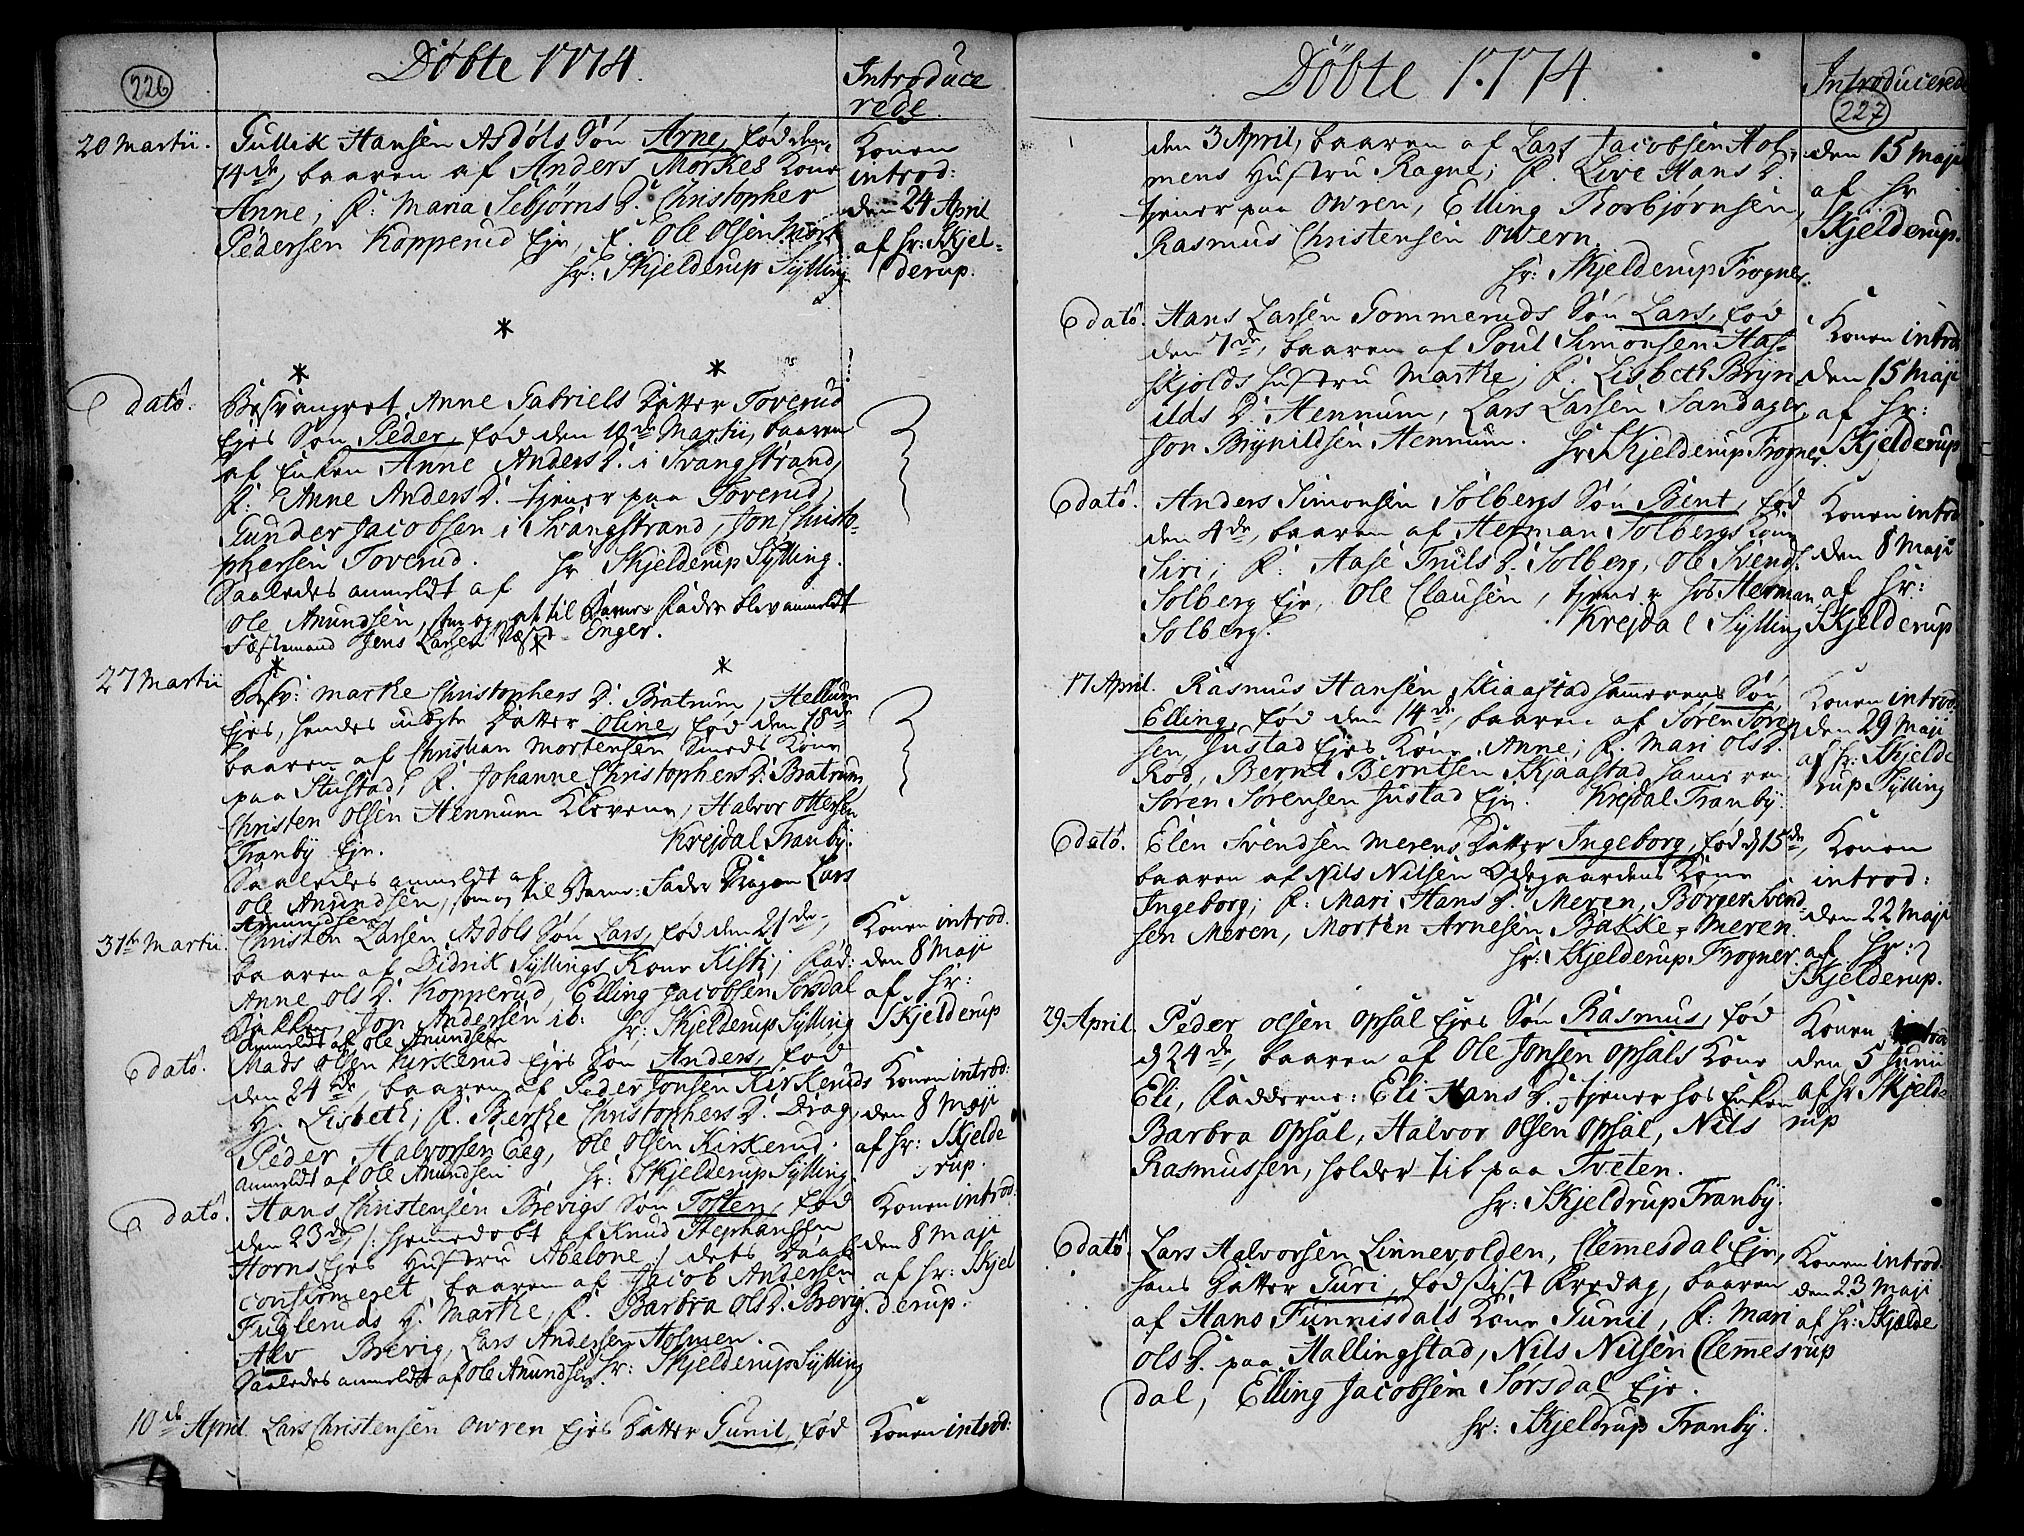 226
Döbte 1774.
Introduce
rede.
20 Martii.
Gullik Hansen Asdøls Søn Arne, fød den
14de, baaren af Anders Mørkes Kone
Anne; F: Maria Sebjørns D. Christopher
Pedersen Kopperud Eje, f. Ole Olsen Mørk
hr: Skjelderup Sylling
Konen
introd:
den 24 April
af hr: Skjel-
derup.
dato.
Besvangret Anne Gabriels Datter Toverud
Ejes Søn Peder, fød den 10de Martii, baaren
af Enken Anne Anders D. i Svangstrand,
F: Anne Anders D. tjener paa Toverud,
Gunder Jacobsen i Svangstrand, Jon Christo-
phersen Toverud. hr Skjelderup Sylling.
Saaledes anmeldt af
Ole Amundsen, som og at til Barne Fader blev anmeldt
Jens Larsen Enger.
27 Martii
Besv: Marthe Christophers D. Bratrum, Hellum
Ejes, hendes uægte Datter Oline, fød den 18de
baaren af Christian Mortensen Smeds Kone
paa Hustad, F. Johanne Christophers D. Bratrum,
Christen Olsen Hennum Kleven, Halvor Ottersen
Tranby Eje. Krejdal Tranby.
Saaledes anmeldt af
Ole Amundsen, som og til Barne: Fader Dragon Lars
Amundsen
31te Martii
Christen Larsen Asdøls Søn Lars, fød den 21de,
baaren af Didrik Syllings Kone Kisti; Fad:
Anne Ols D. Kopperud, Elling Jacobsen Sørsdal
Bakken, Jon Andersen ib: hr: Skjelderup Sylling
anmeldt af Ole Amundsen
Konen introd.
den 8 Maji
af hr:
Skjelderup
dato.
Mads Olsen Kirkerud Ejes Søn Anders, fød
den 24de, baaren af Peder Jonsen Kirkeruds
H. Lisbeth; F. Berthe Christophers D. Drag,
Peder Halvorsen Eeg, Ole Olsen Kirkerud.
anmeldt af Ole Amundsen hr: Skjelderup Sylling
Konen introd:
den 8 Maji
af hr: Skjelde
rup.
dato.
Hans Christensen Brevigs Søn Tosten, fød
den 23de /: hjemedøbt af Knud Stephansen
Horns Ejes Hustru Abelone :/ dets Daab
confirmeret, baaren af Jacob Andersen
Fugleruds H. Marthe, F. Barbra Ols D. Brevig
Alv Brevig, Lars Andersen Holmen.
Saaledes anmeldt af Ole Amundsen hr: Skjelderup Sylling
Konen introd.
den 8 Maji
af hr: Skjel
derup.
10de April.
Lars Christensen Owren Ejes Datter Gunil, fød
Konen introd:
Döbte 1774.
Introducerede
227
den 3 April, baaren af Lars Jacobsen Hol-
mens Hustru Ragne; F. Live Hans D.
tjener paa Owren, Elling Torbjørnsen,
Rasmus Christensen Owern.
hr: Skjelderup Frogner.
den 15 Maji
af hr
Skjelderup.
dato.
Hans Larsen Gommeruds Søn Lars, fød
den 7de, baaren af Poul Simonsen Has-
skjolds Hustru Marthe; F. Lisbeth Bryn
ilds D. Hennum, Lars Larsen Sandager,
Jon Brynildsen Hennum. hr Skjelderup Frogner
Konen introd
den 15 Maji
af hr:
Skjelderup
dato.
Anders Simonsen Solbergs Søn Bent, fød
den 4de, baaren af Herman Solbergs Kone
Siri; F. Aase Truls D. Solberg, Ole Svends.
Solberg Eje, Ole Clausen, tjener hos Herman
Solberg. Krejdal Sylling
Konen introd
den 8 Maji
af hr:
Skjelderup
17 April.
Rasmus Hansen Skiaastad Hameren Søn
Elling, fød den 14de, baaren af Søren Søren
sen Justad Ejes Kone Anne; F. Mari Ols D.
Rød, Bernt Berntsen Skjaastad Hameren,
Søren Sørensen Justad Eje. Krejdal Tranby.
Konen introd.
den 29 Maji
af hr: Skjelde
rup Sylling
dato.
Elen Svendsen Merens Datter Ingeborg, fød d 15de,
baaren af Nils Nilsen Ødegaardens Kone
Ingeborg; F. Mari Hans D. Meren, Børger Svend
sen Meren, Morten Arnesen Bakke-Meren.
hr: Skjelderup Frogner
Konen
introd:
den 22 Maji
af hr:
Skjelderup.
29 April.
Peder Olsen Opsal Ejes Søn Rasmus, fød
d 24de, baaren af Ole Jonsen Opsals Kone
Eli, Fadderne: Eli Hans D. tjener hos Enken
Barbra Opsal, Halvor Olsen Opsal, Nils
Rasmussen, holder til paa Tveten.
hr: Skjeldrup Tranby
Konen introd
den 5 Junii
af hr Skjelde
rup
dato.
Lars Halvorsen Linnevolden, Clemesdal Eje,
hans Datter Guri, fød sidst Fredag, baaren
af Hans Funnisdals Kone Gunil, F: Mari
Ols D. paa Hallingstad, Nils Nilsen Clemes
dal, Elling Jacobsen Sørsdal Eje.
hr: Skjeldrup Tranby.
Konen introd:
den 23 Maji
af hr: Skjælde
rup